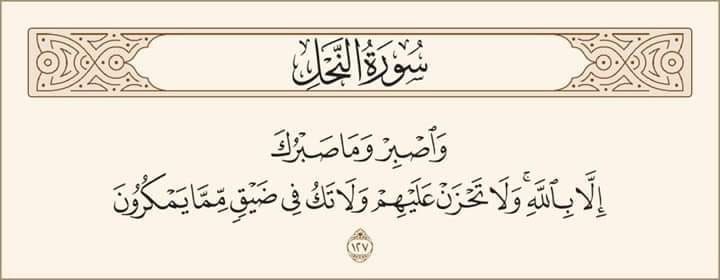 سُورَةُ النَّحۡلِ
وَٱصۡبِرۡ وَمَا صَبۡرُكَ
إِلَّا بِٱللَّهِۚ وَلَا تَحۡزَنۡ عَلَيۡهِمۡ وَلَا تَكُ فِي ضَيۡقٖ مِّمَّا يَمۡكُرُونَ
١٢٧